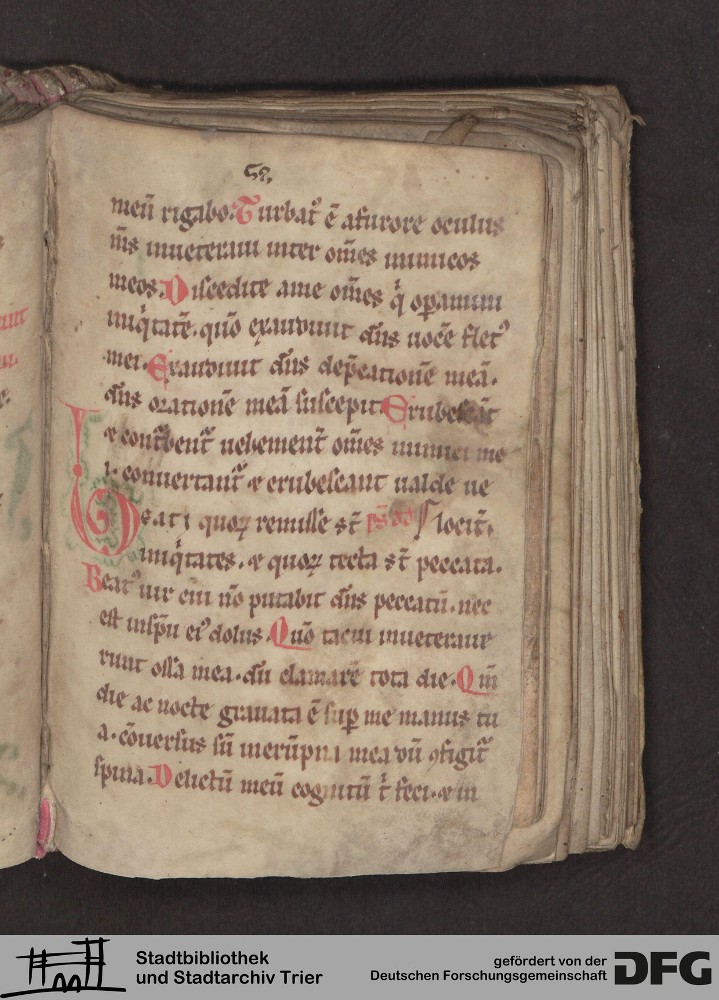 58
meū rigabo. Turbat᷒ ē afurore oculus
m̄s inueteraui inter om̄es inimicos
meos. Discedite ame om̄es q̇ operamini
iniq̇tatē. qm̄o exaudiuit dn̄s uocē flet᷒
mei. Exaudiuit dn̄s dep̄cationē meā.
dn̄s orationē meā suscepit. Erubescāt
⁊ cont̄bent̄ uehement̄ om̄es inimici me
i. conuertant̄ ⁊ erubescant ualde ue
Beati quoꝝ remisse st̄ ps̄ dd̄ locit̄.
iniq̇tates. ⁊ quoꝝ tecta st̄ peccata.
Beat᷒ uir cui nō putabit dn̄s peccatū. nec
est inspū ei᷒ dolus. Quō tacui inueteraue
runt ossa mea. dū clamarē tota die. Qm̄
die ac nocte grauata ē sup me manus tu
a. cōuersus sū inerūpna mea dū ꝯfigit̄
spina. Delictū meū cognitū t̄ feci. ⁊ in
Stadtbibliothek
und Stadtarchiv Trier
gefördert von der
Deutschen Forschungsgemeinschaft
DFG